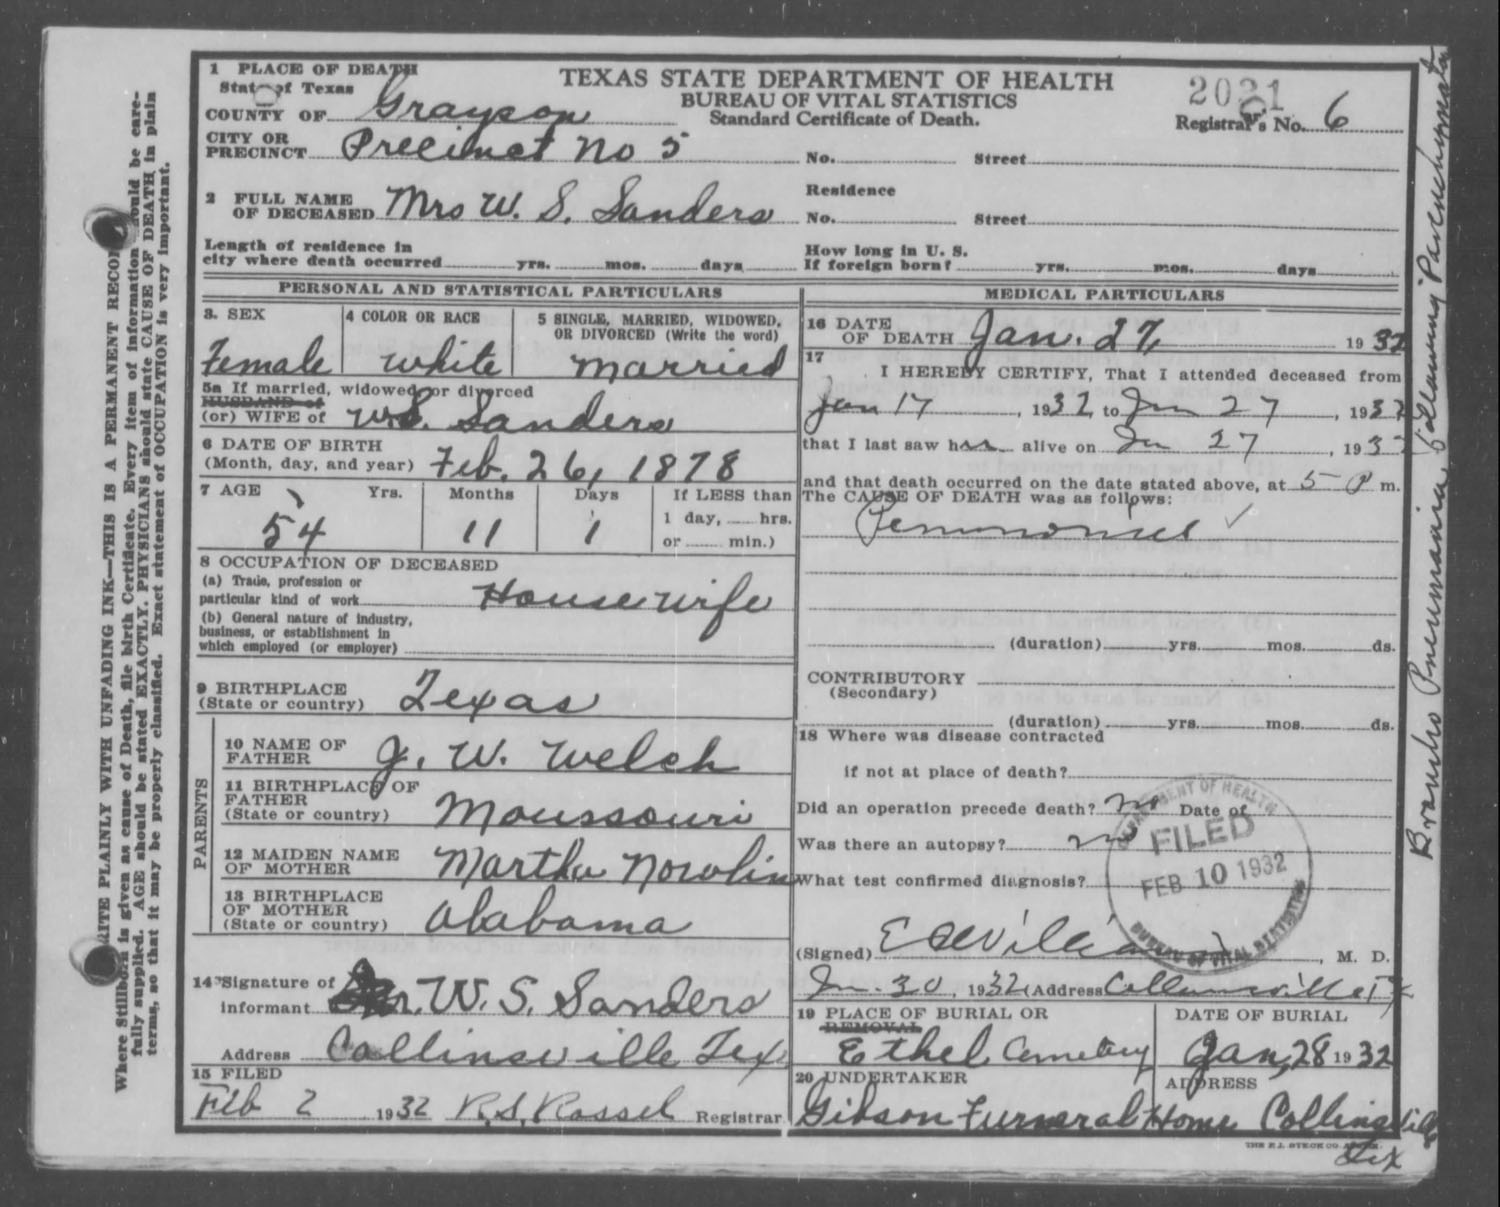 1 PLACE OF DEATH
State of Texas
COUNTY OF Grayson
CITY OR
PRECINCT Precinct No 5
TEXAS STATE DEPARTMENT OF HEALTH
BUREAU OF VITAL STATISTICS
Standard Certificate of Death.
2021
Registrar's No. 6
No. Street
2 FULL NAME
OF DECEASED Mrs W. S. Sanders
Residence
No. Street
Length of residence in
city where death occurred yrs. mos. days
How long in U. S.
If foreign born? yrs. mos. days
PERSONAL AND STATISTICAL PARTICULARS
3. SEX
Female
4 COLOR OR RACE
White
5 SINGLE, MARRIED, WIDOWED,
OR DIVORCED (Write the word)
Married
5a If married, widowed or divorced
HUSBAND of
(or) WIFE of W.S. Sanders
6 DATE OF BIRTH
(Month, day, and year) Feb. 26, 1878
7 AGE Yrs. Months Days If LESS than
1 day, hrs.
or min.)
54 11 1
8 OCCUPATION OF DECEASED
(a) Trade, profession or
particular kind of work House wife
(b) General nature of industry,
business, or establishment in
which employed (or employer)
9 BIRTHPLACE
(State or country) Texas
PARENTS
10 NAME OF
FATHER J. W. Welch
11 BIRTHPLACE OF
FATHER
(State or country) Moussouri
12 MAIDEN NAME
OF MOTHER Martha Nowlin
13 BIRTHPLACE
OF MOTHER
(State or country) Alabama
14 Signature of
informant Mr. W. S. Sanders
Address Collinsville Tex.
15 FILED
Feb 2 1932 R.S. Rassel Registrar
MEDICAL PARTICULARS
16 DATE
OF DEATH Jan. 27, 1932
17
I HEREBY CERTIFY, That I attended deceased from
Jan 17, 1932, to Jan 27, 1932
that I last saw her alive on Jan 27, 1932
and that death occurred on the date stated above, at 5 P m.
The CAUSE OF DEATH was as follows:
(duration) yrs. mos. ds.
CONTRIBUTORY
(Secondary)
(duration) yrs. mos. ds.
18 Where was disease contracted
if not at place of death?
Did an operation precede death? no Date of
Was there an autopsy? no
What test confirmed diagnosis?
DEPARTMENT OF HEALTH
FILED
FEB 10 1932
BUREAU OF VITAL STATISTICS
(Signed) , M. D.
Jan. 30, 1932 (Address Collinsville Tx
19 PLACE OF BURIAL OR
REMOVAL
Ethel Cemetery
DATE OF BURIAL
Jan, 28 1932
20 UNDERTAKER
Gibson Furneral Home
ADDRESS
Collinsville
Tex
WRITE PLAINLY WITH UNFADING INK—THIS IS A PERMANENT RECORD
Where Stillborn is given as cause of Death, file birth Certificate. Every item of information should be care-
fully supplied. AGE should be stated EXACTLY. PHYSICIANS should state CAUSE OF DEATH in plain
terms, so that it may be properly classified. Exact statement of OCCUPATION is very important.
Broncho Pneumonia, following